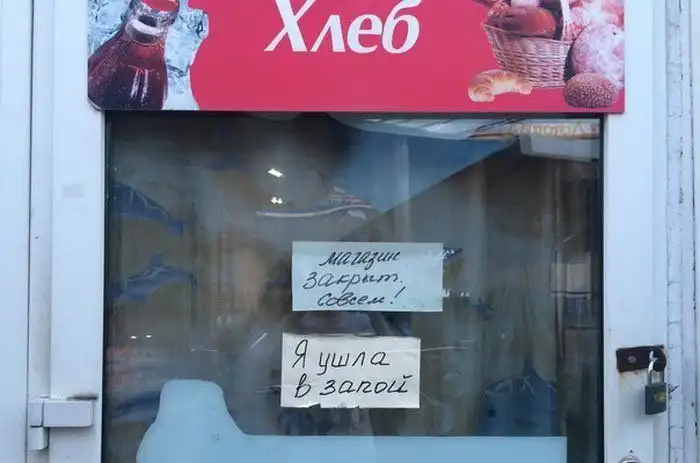 Хлеб
магазин
закрыт.
совсем!
Я ушла
в запой